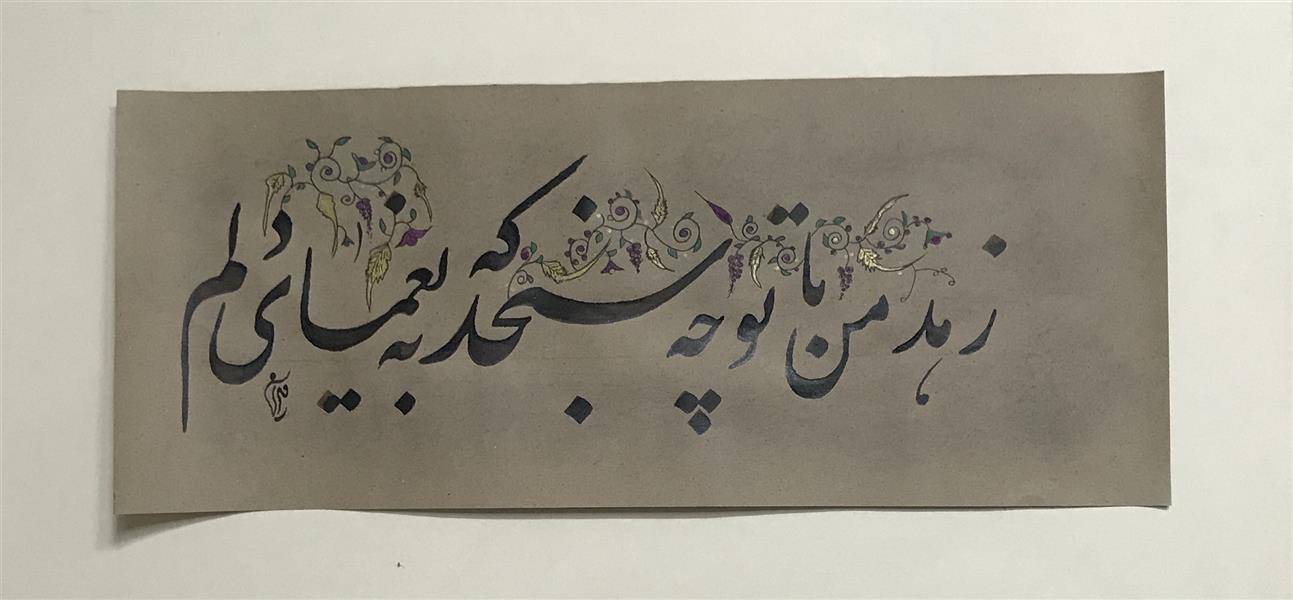 زهد من با تو چه سنجد که به یغمای دلم